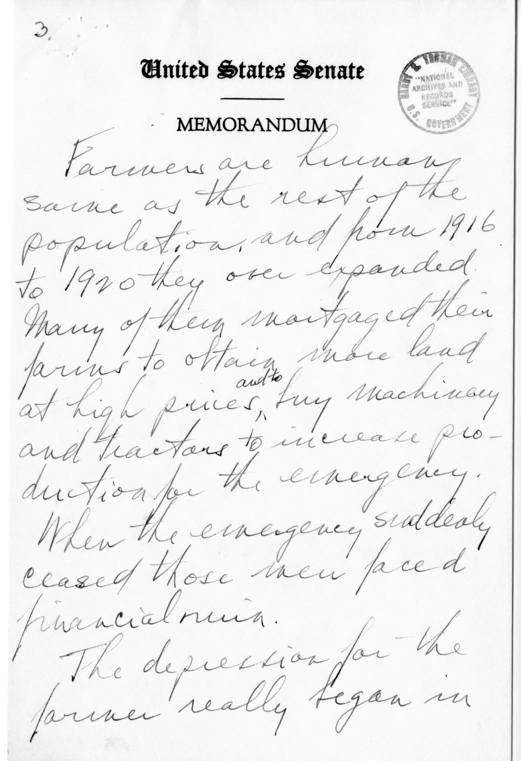 3.
United States Senate
MEMORANDUM
HARRY S. TRUMAN LIBRARY
"NATIONAL
ARCHIVES AND
RECORDS
SERVICE"
U.S. GOVERNMENT
Farmers are human
same as the rest of the
population, and from 1916
to 1920 they over expanded.
Many of them mortgaged their
farms to obtain more land
at high prices, and to buy machinery
and tractors to increase pro-
duction for the emergency.
When the emergency suddenly
ceased those men faced
financial ruin.
The depression for the
farmer really began in